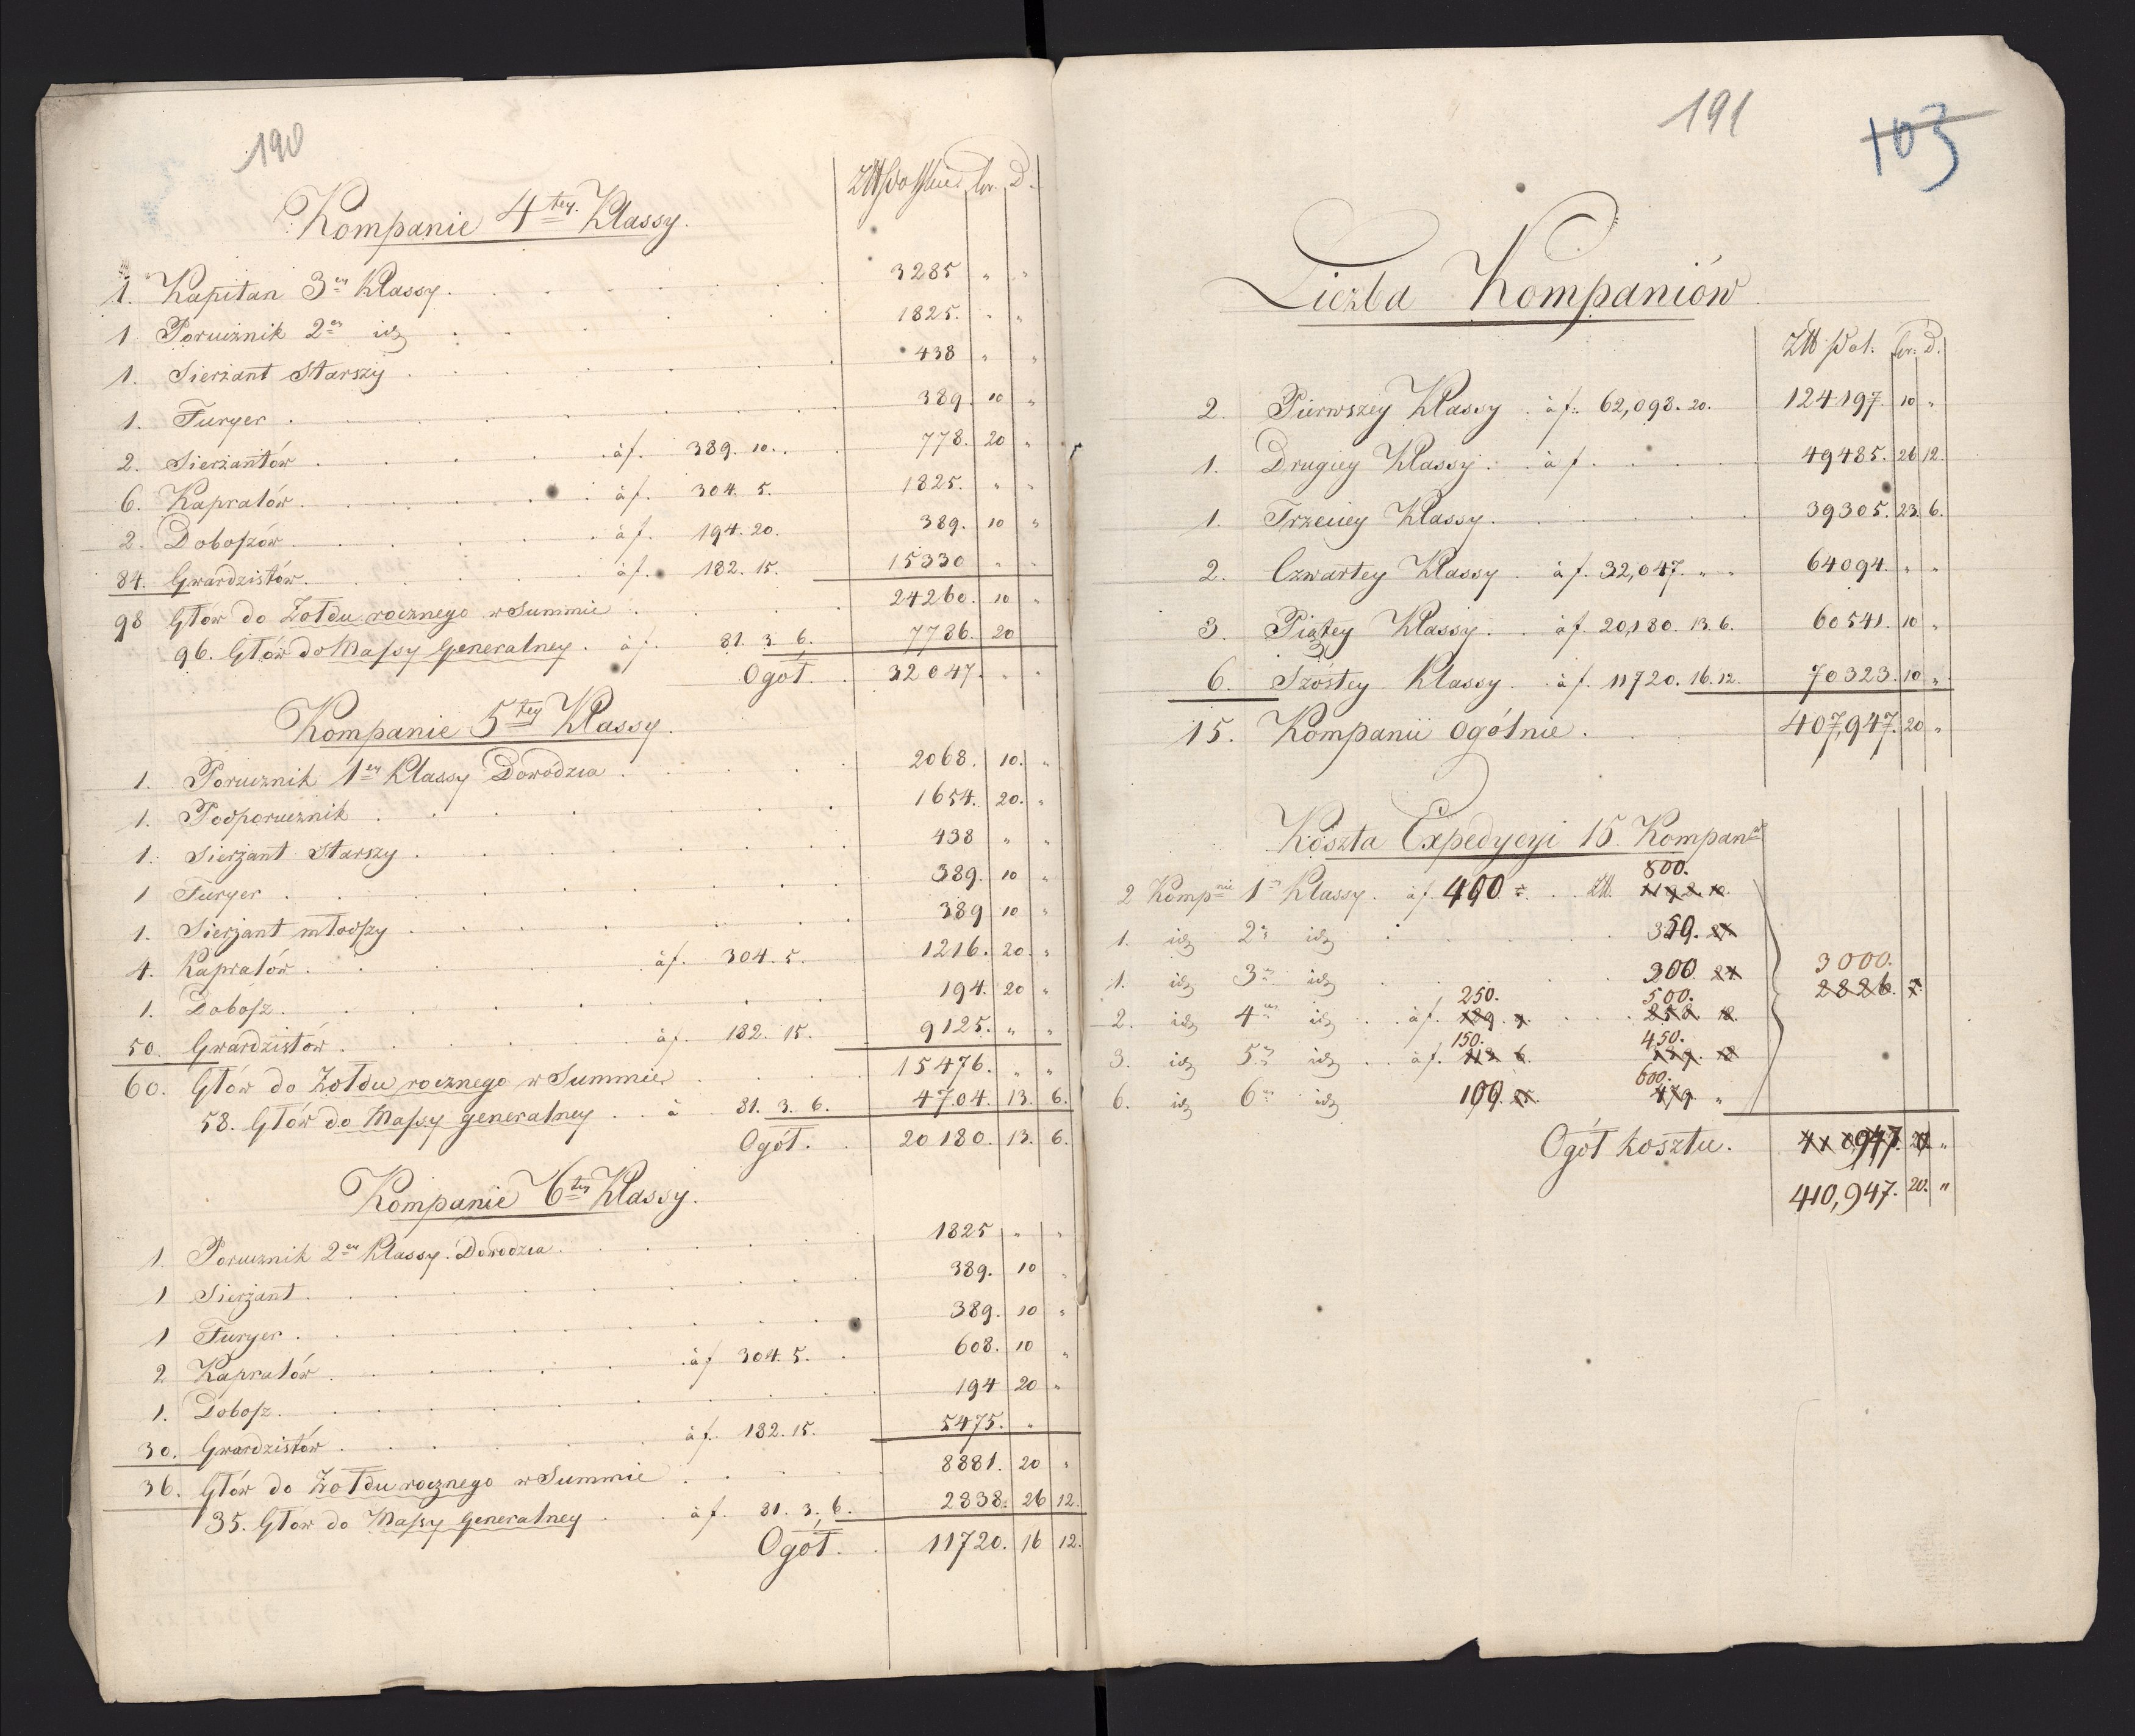 190
Złt Polskie. Gr. D.
Kompanie 4tey Klassy.
1. Kapitan 3ey Klassy. 3285 „ „
1 Porucznik 2ey id 1825. „ „
1. Sierżant Starszy 438 „ „
1. Furyer 389. 10 „
2. Sierżantów à f. 389. 10. 778. 20 „
6. Kapralów à f. 304. 5. 1825. „ „
2. Doboszów à f. 194. 20. 389. 10 „
84. Gwardzistów. à f. 182. 15. 15330 „ „
98 Głów do Żołdu rocznego w Summie 24260. 10 „
96. Głów do Massy Generalney. à f. 81. 3. 6. 7786. 20
Ogół. 32047. „ „
Kompanie 5tey Klassy.
1. Porucznik 1ey Klassy Dowódzca 2068. 10. „
1. Podporucznik 1654. 20. „
1. Sierżant Starszy 438 „ „
1 Furyer 389. 10 „
1. Sierżant młodszy 389 10 „
4. Kapralów à f. 304. 5. 1216. 20. „
1. Dobosz. 194. 20 „
50. Gwardzistów. à f. 182. 15. 9125. „ „
60. Głów do Żołdu rocznego w Summie 15476. „ „
58. Głów do Massy generalney à 81. 3. 6. 4704. 13. 6.
Ogół. 20180. 13. 6.
Kompanie 6tey Klassy.
1. Porucznik 2ey Klassy. Dowodzca. 1825 „ „
1 Sierżant 389. 10 „
1 Furyer. 389. 10 „
2 Kapralów à f 304. 5. 608. 10 „
1. Dobosz. 194 20 „
30. Gwardzistów à f. 182. 15. 5475. „
36. Głów do Żołdu rocznego w Summie 8881. 20 „
35. Głów do Massy Generalney à f. 81. 3. 6. 2838. 26 12.
Ogół. 11720. 16 12.
191
103
Liczba Kompaniów
Złt Pol. Gr. D.
2. Pierwszey Klassy à f. 62,098. 20. 124197. 10 „
1. Drugiey Klassy. à f. 49485. 26 12.
1. Trzeciey Klassy. 39305. 23. 6.
2. Czwartey Klassy à f. 32,047. „ „ 64094. „ „
3. Piątey Klassy. à f. 20,180. 13. 6. 60541. 10 „
6. Szóstey Klassy. à f. 11720. 16. 12. 70323. 10 „
15. Kompanii ogólnie. 407,947. 20 „
Koszta Expedycyi 15. Kompanii
800.
2 Kompnie 1ey Klassy. à f. 400 Złt.
1. id 2ey id 350.
1. id 3ey id 300 3000.
250. 500. 2826.
2. id 4ey id à f.
150. 450.
3. id 5ey id à f.
600.
6. id 6ey id 100. 479 „
Ogół kosztu. 410947. „
410,947. 20. „